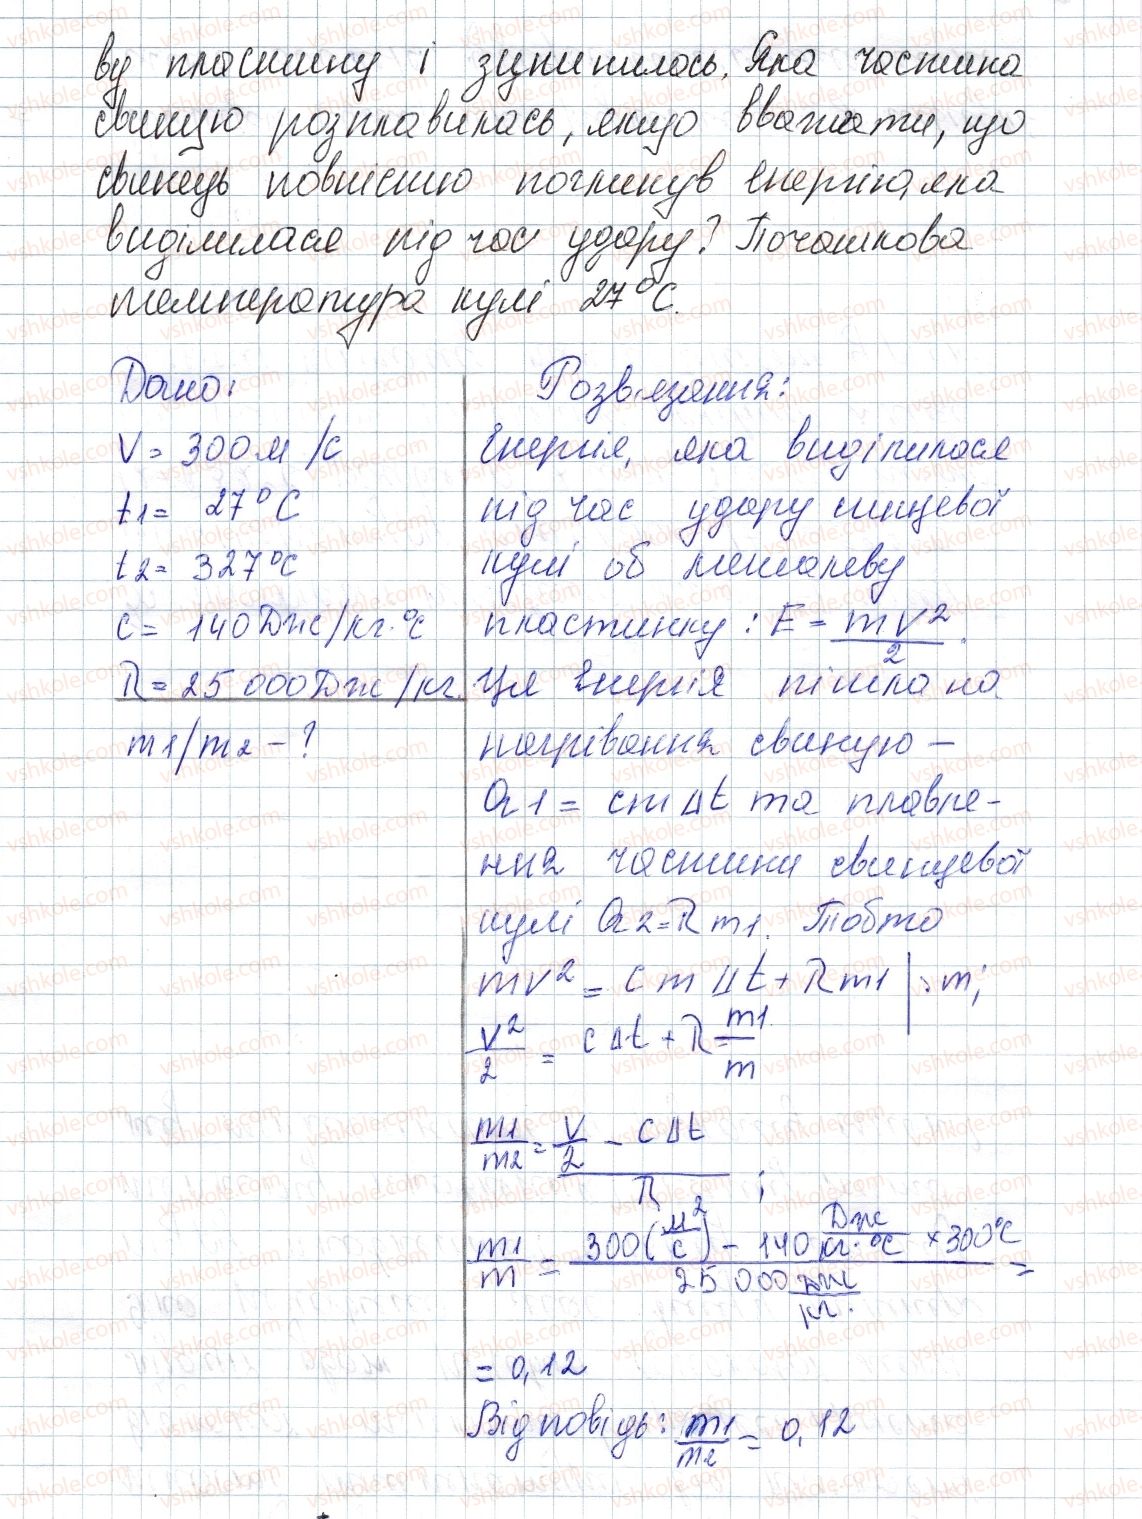 ву пластину і зупинилось. Яка частина
свинцю розплавилась, якщо вважати, що
свинець повністю поглинув енергію, яка
виділилася під час удару? Початкова
температура кулі 27°C.
Дано:
V = 300 м/с
t1 = 27°C
t2 = 327°C
c = 140 Дж/кг·°C
R = 25 000 Дж/кг
m1/m2 - ?
Розв'язання:
Енергія, яка виділилася
під час удару свинцевої
кулі об металеву
пластинку: E = mv²/2.
Ця енергія пішла на
нагрівання свинцю –
Q1 = cmΔt та плавле-
ння частини свинцевої
кулі Q2 = Rm1. Тобто
mv² = cmΔt + Rm1 | : m;
v²/2 = cΔt + R m1/m
m1/m2 = (v/2 - cΔt)/R;
m1/m = (300(м/с)² - 140 Дж/кг·°C × 300°C)/(25 000 Дж/кг.) =
= 0,12
Відповідь: m1/m2 = 0,12
vshkole.com